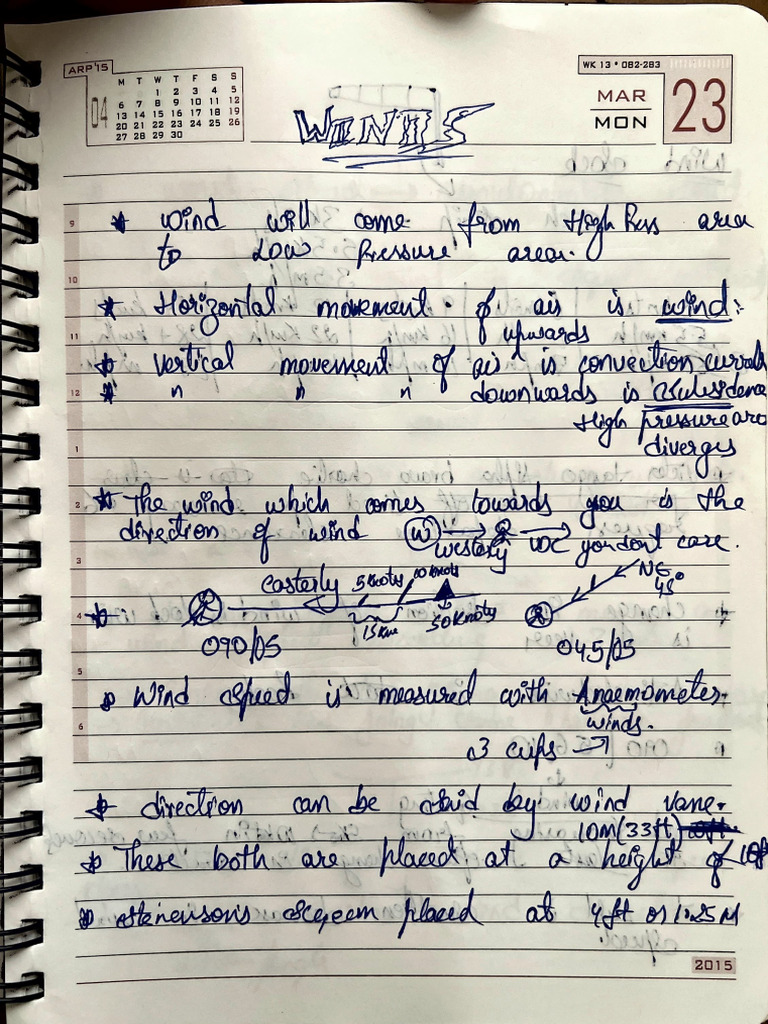 ARP'15
M T W T F S S
1 2 3 4 5
04 6 7 8 9 10 11 12
13 14 15 16 17 18 19
20 21 22 23 24 25 26
27 28 29 30
WK 13 • 082-283
MAR
MON
23
WINDS
9
* Wind will come from High Press area
to Low Pressure area.
10
* Horizontal movement of air is wind:
11
upwards
* Vertical movement of air ^ is convection currents
12
* " " " downwards is subsidence
High pressure area
1
diverges
2
* The wind which comes towards you is the
direction of wind (W) westerly you don't care.
3
easterly 5 knots 10 knots NE
45°
4
* 15 50 knots
090/05 045/05
5
* Wind speed is measured with Anaemometer.
6
winds.
3 cups →
* direction can be said by wind vane.
10M (33ft)
* These both are placed at a height of
* Stevenson's Screem placed at 4ft or 1.25M
2015